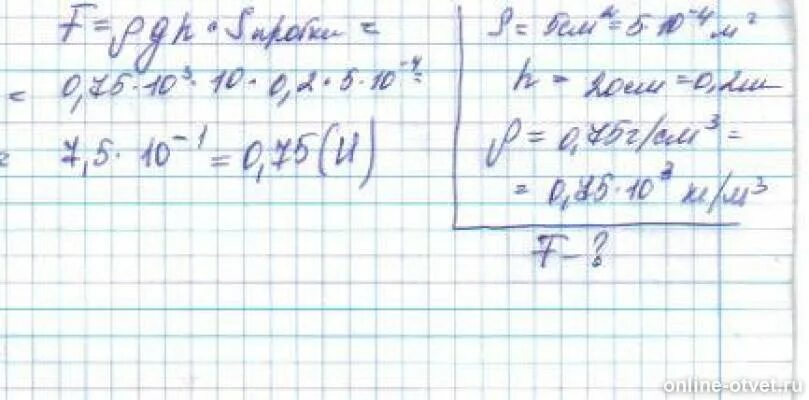 F = ρgh · Sпробки =
= 0,75·10³ · 10 · 0,2 · 5·10⁻⁴ =
= 7,5 · 10⁻¹ = 0,75 (Н)
S = 5см² = 5·10⁻⁴ м²
h = 20см = 0,2м
ρ = 0,75г/см³ =
= 0,75·10³ кг/м³
F – ?
online-otvet.ru